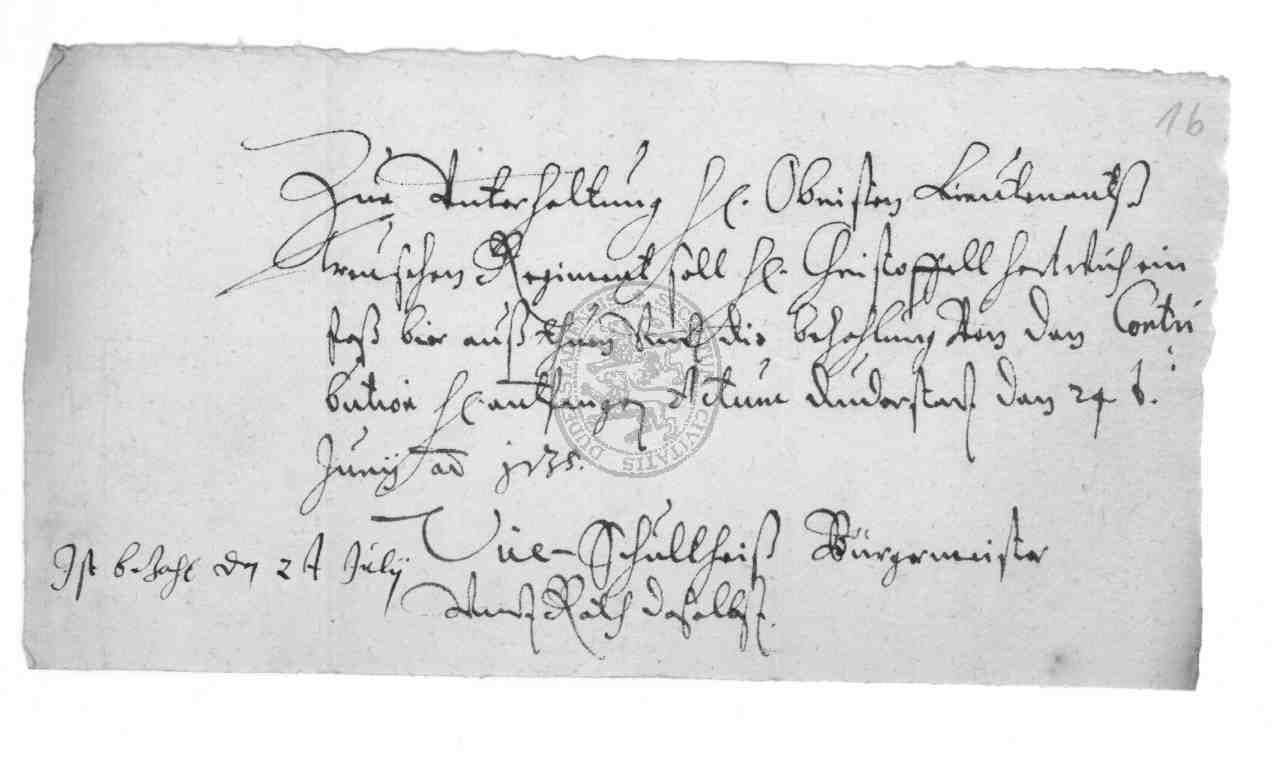 16
Zue Vnterhaltung H. Obristen Lieutenantß
Regiment soll H. Christoffell Hertwich ein
faß bier auß thun Vndt die bezahlung Von den Contri
bution H. empfangen Actum Duderstadt den 24 t.
Junij aō 1635.
Vice-Schultheiß Bürgermeister
Vndt Rath daselbst.
Ist bezahlt den 2 Julij